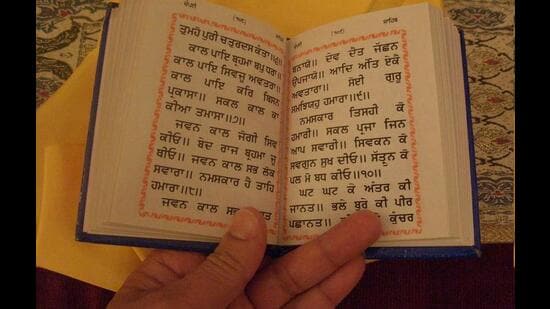 ਤੁਮਹੋ ਪੁਰੀ ਚਤੁਰਦਸ ਕੰਤਾ॥੬॥
ਕਾਲ ਪਾਇ ਬ੍ਰਹਮਾ ਬਪੁ ਧਰਾ॥
ਕਾਲ ਪਾਇ ਸਿਵਜੂ ਅਵਤਰਾ॥
ਕਾਲ ਪਾਇ ਕਰਿ ਬਿਸਨ
ਪ੍ਰਕਾਸਾ॥ ਸਕਲ ਕਾਲ ਕਾ
ਕੀਆ ਤਮਾਸਾ॥੭॥
ਜਵਨ ਕਾਲ ਜੋਗੀ ਸਿਵ
ਕੀਓ॥ ਬੇਦ ਰਾਜ ਬ੍ਰਹਮਾ ਜੂ
ਥੀਓ॥ ਜਵਨ ਕਾਲ ਸਭ ਲੋਕ
ਸਵਾਰਾ॥ ਨਮਸਕਾਰ ਹੈ ਤਾਹਿ
ਹਮਾਰਾ॥੮॥
ਜਵਨ ਕਾਲ ਸਭ
ਸਾਹਿਬ
ਬਨਾਯੋ॥ ਦੇਵ ਦੈਤ ਜੱਛਨ
ਉਪਜਾਯੋ॥ ਆਦਿ ਅੰਤਿ ਏਕੋ
ਅਵਤਾਰਾ॥ ਸੋਈ ਗੁਰੂ
ਸਮਝਿਯਹੁ ਹਮਾਰਾ॥੯॥
ਨਮਸਕਾਰ ਤਿਸਹੀ ਕੋ
ਹਮਾਰੀ॥ ਸਕਲ ਪ੍ਰਜਾ ਜਿਨ
ਆਪ ਸਵਾਰੀ॥ ਸਿਵਕਨ ਕੋ
ਸਵਗੁਨ ਸੁਖ ਦੀਓ॥ ਸੱਤ੍ਰੁਨ ਕੋ
ਪਲ ਮੋ ਬਧ ਕੀਓ॥੧੦॥
ਘਟ ਘਟ ਕੇ ਅੰਤਰ ਕੀ
ਜਾਨਤ॥ ਭਲੇ ਬੁਰੇ ਕੀ ਪੀਰ
ਪਛਾਨਤ॥ ਕੁੰਚਰ